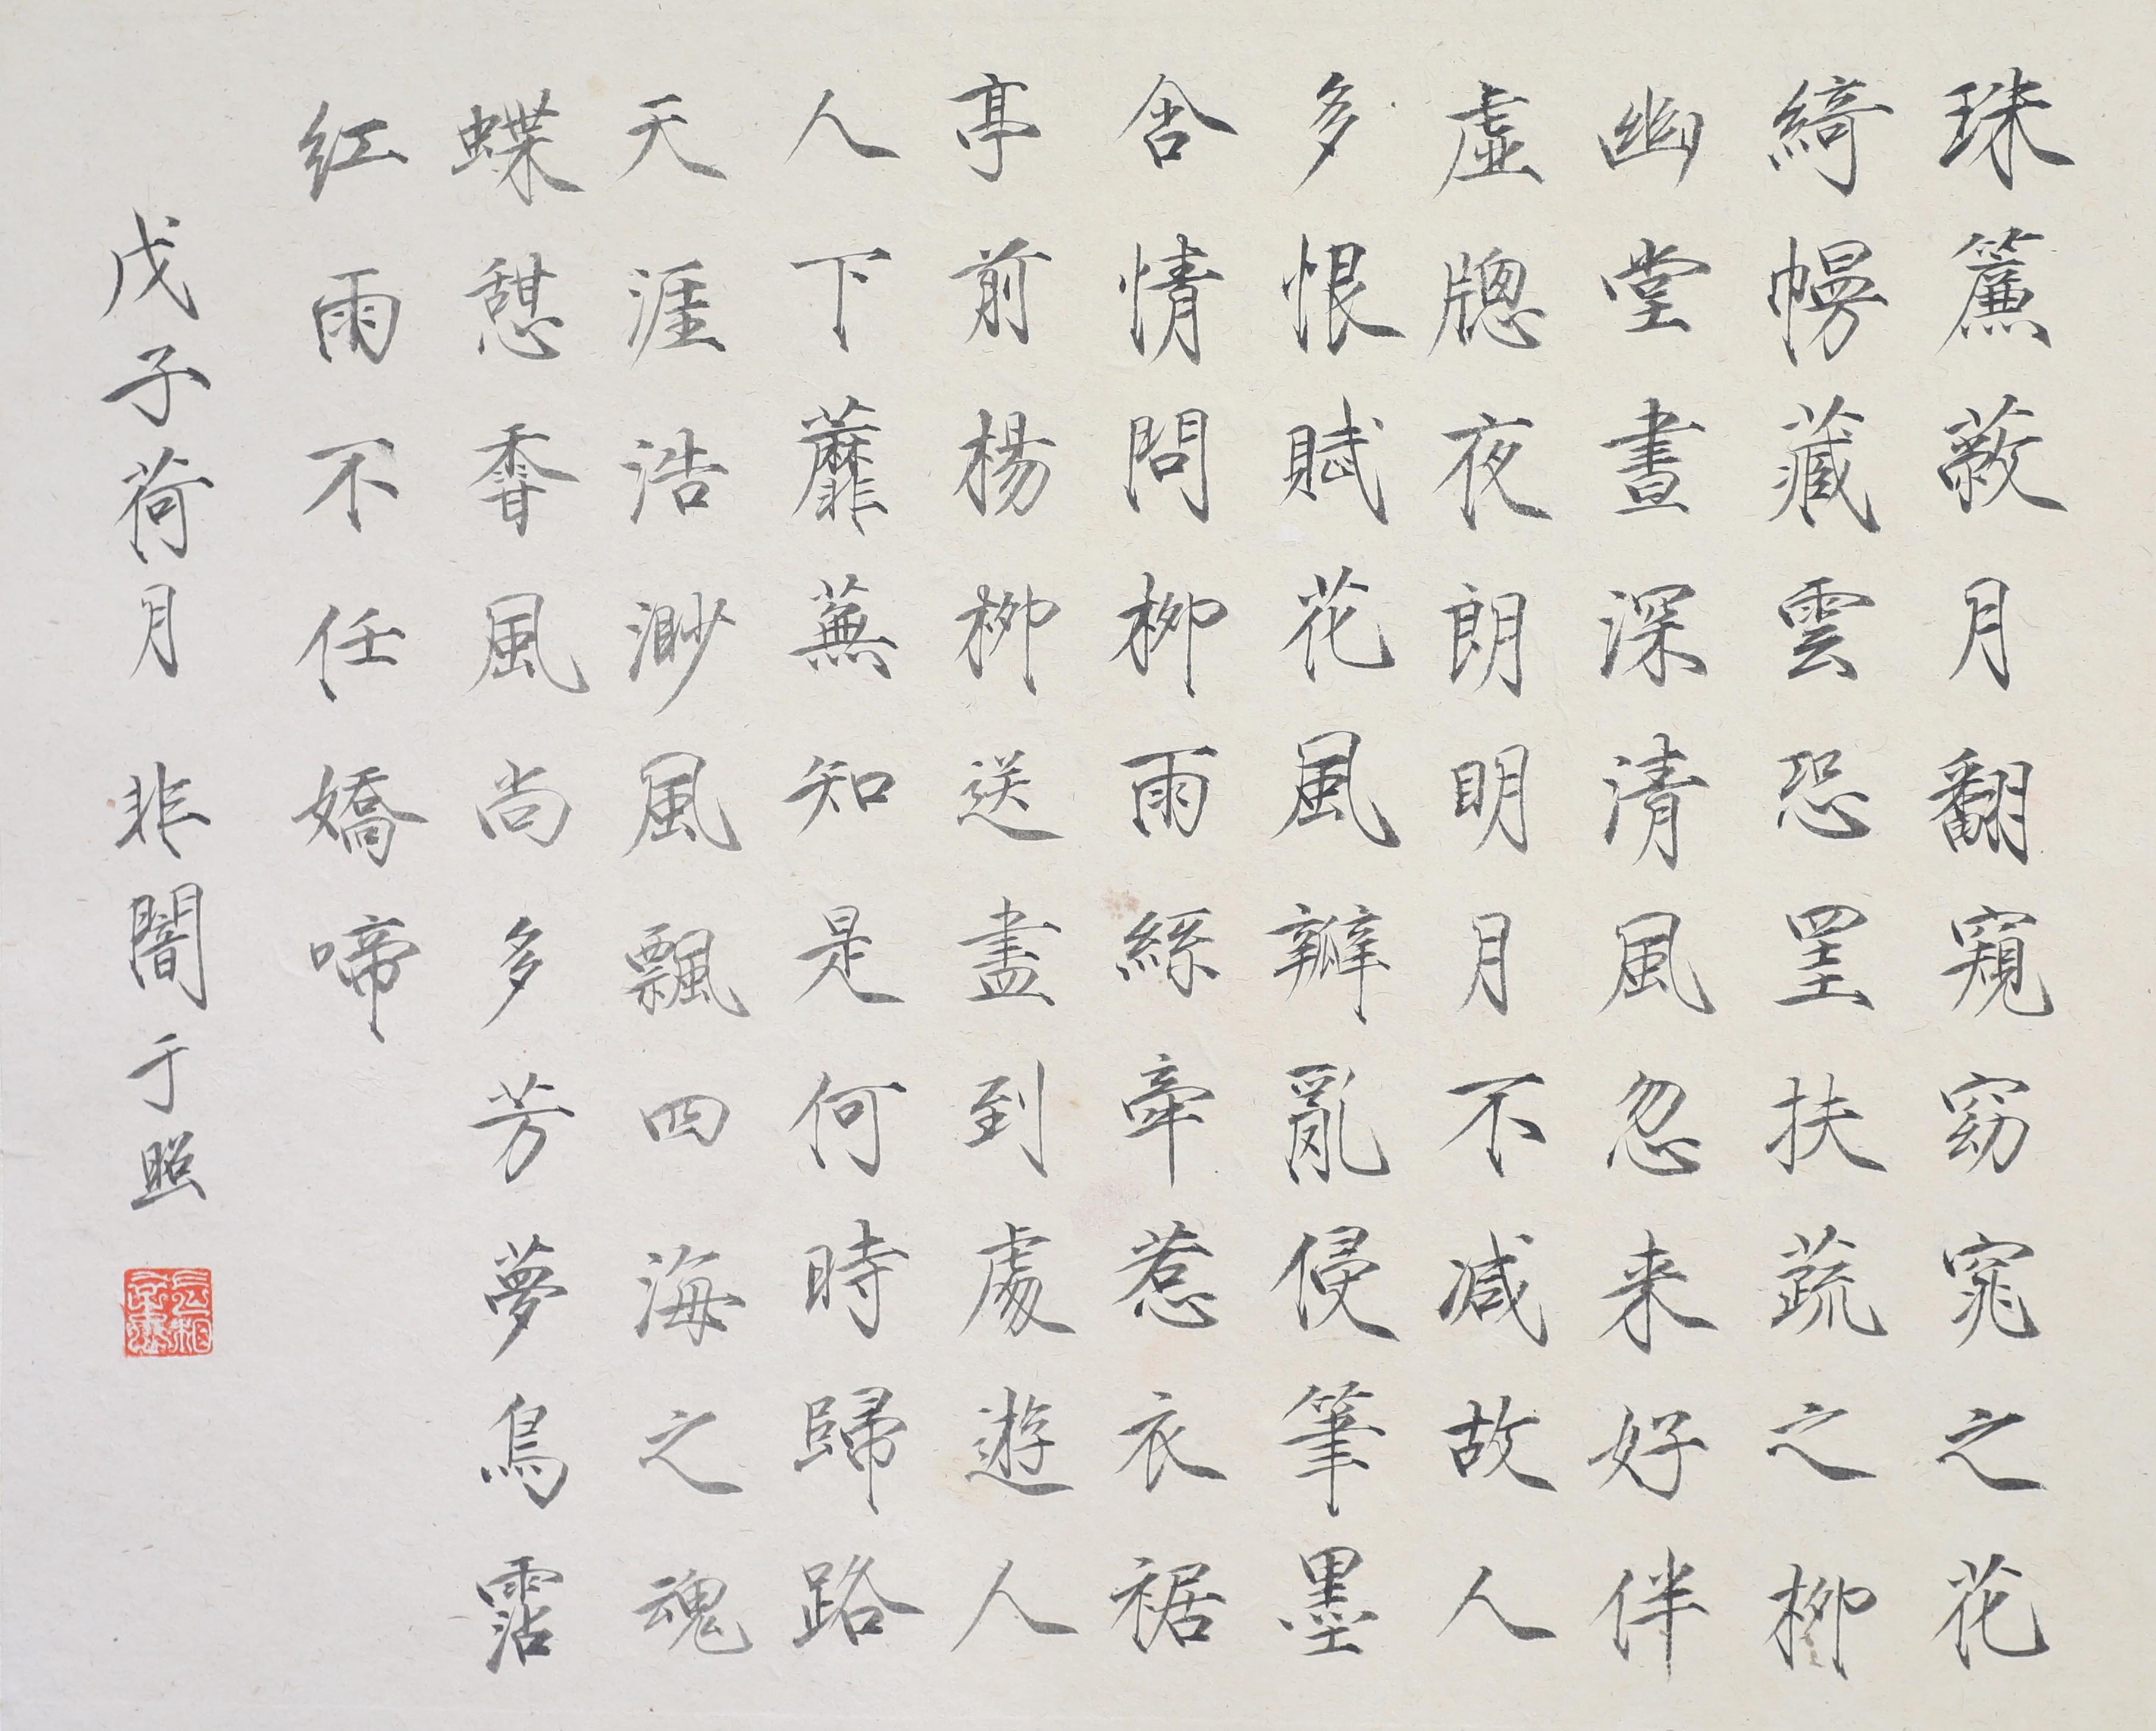 珠簾蔽月翻窺窈窕之花
綺幔藏雲恐罣扶蔬之柳
幽堂晝深清風忽来好伴
虛牕夜朗明月不减故人
多恨賦花風瓣亂侵筆墨
含情問柳雨絲牽惹衣裾
亭前楊柳送盡到處遊人
人下蘼蕪知是何時歸路
天涯浩渺風飄四海之魂
蝶憩香風尚多芳夢鳥霑
紅雨不任嬌啼
戊子荷月 非闇于照